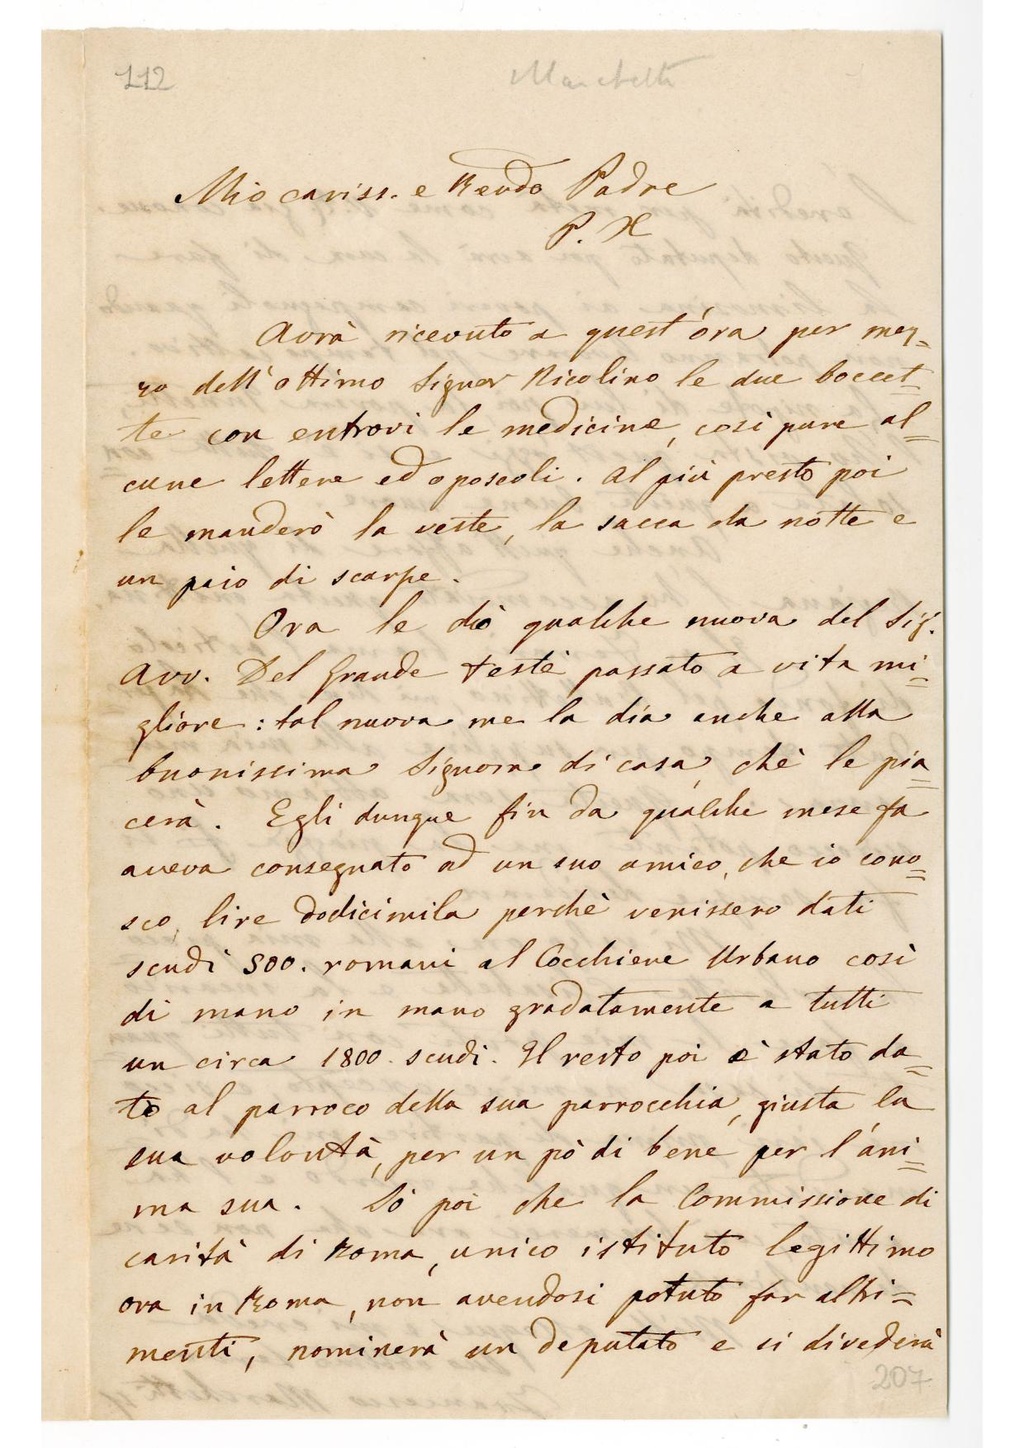 112
Marchetti
Mio cariss. e Rendo Padre
P. X
Avrà ricevuto a quest'ora per mez=
zo dell'ottimo Signor Nicolino le due boccet=
te con entrovi le medicine, così pure al=
cune lettere ed oposcoli. Al più presto poi
le manderò la veste, la sacca da notte e
un paio di scarpe.
Ora le dò qualche nuova del Sig.
Avv. Del Grande testè passato a vita mi=
gliore: tal nuova me la dia anche alla
buonissima Signora di casa, chè le pia=
cerà. Egli dunque fin da qualche mese fa
aveva consegnato ad un suo amico, che io cono=
sco, lire dodicimila perchè venissero dati
scudi 500. romani al Cocchiere Urbano così
di mano in mano gradatamente a tutti
un circa 1800. scudi. Il resto poi è stato da=
to al parroco della sua parrocchia, giusta la
sua volontà, per un pò di bene per l'ani=
ma sua. Sò poi che la Commissione di
carità di Roma, unico istituto legittimo
ora in Roma, non avendosi potuto far altri=
menti, nominerà un deputato e si divederà
207